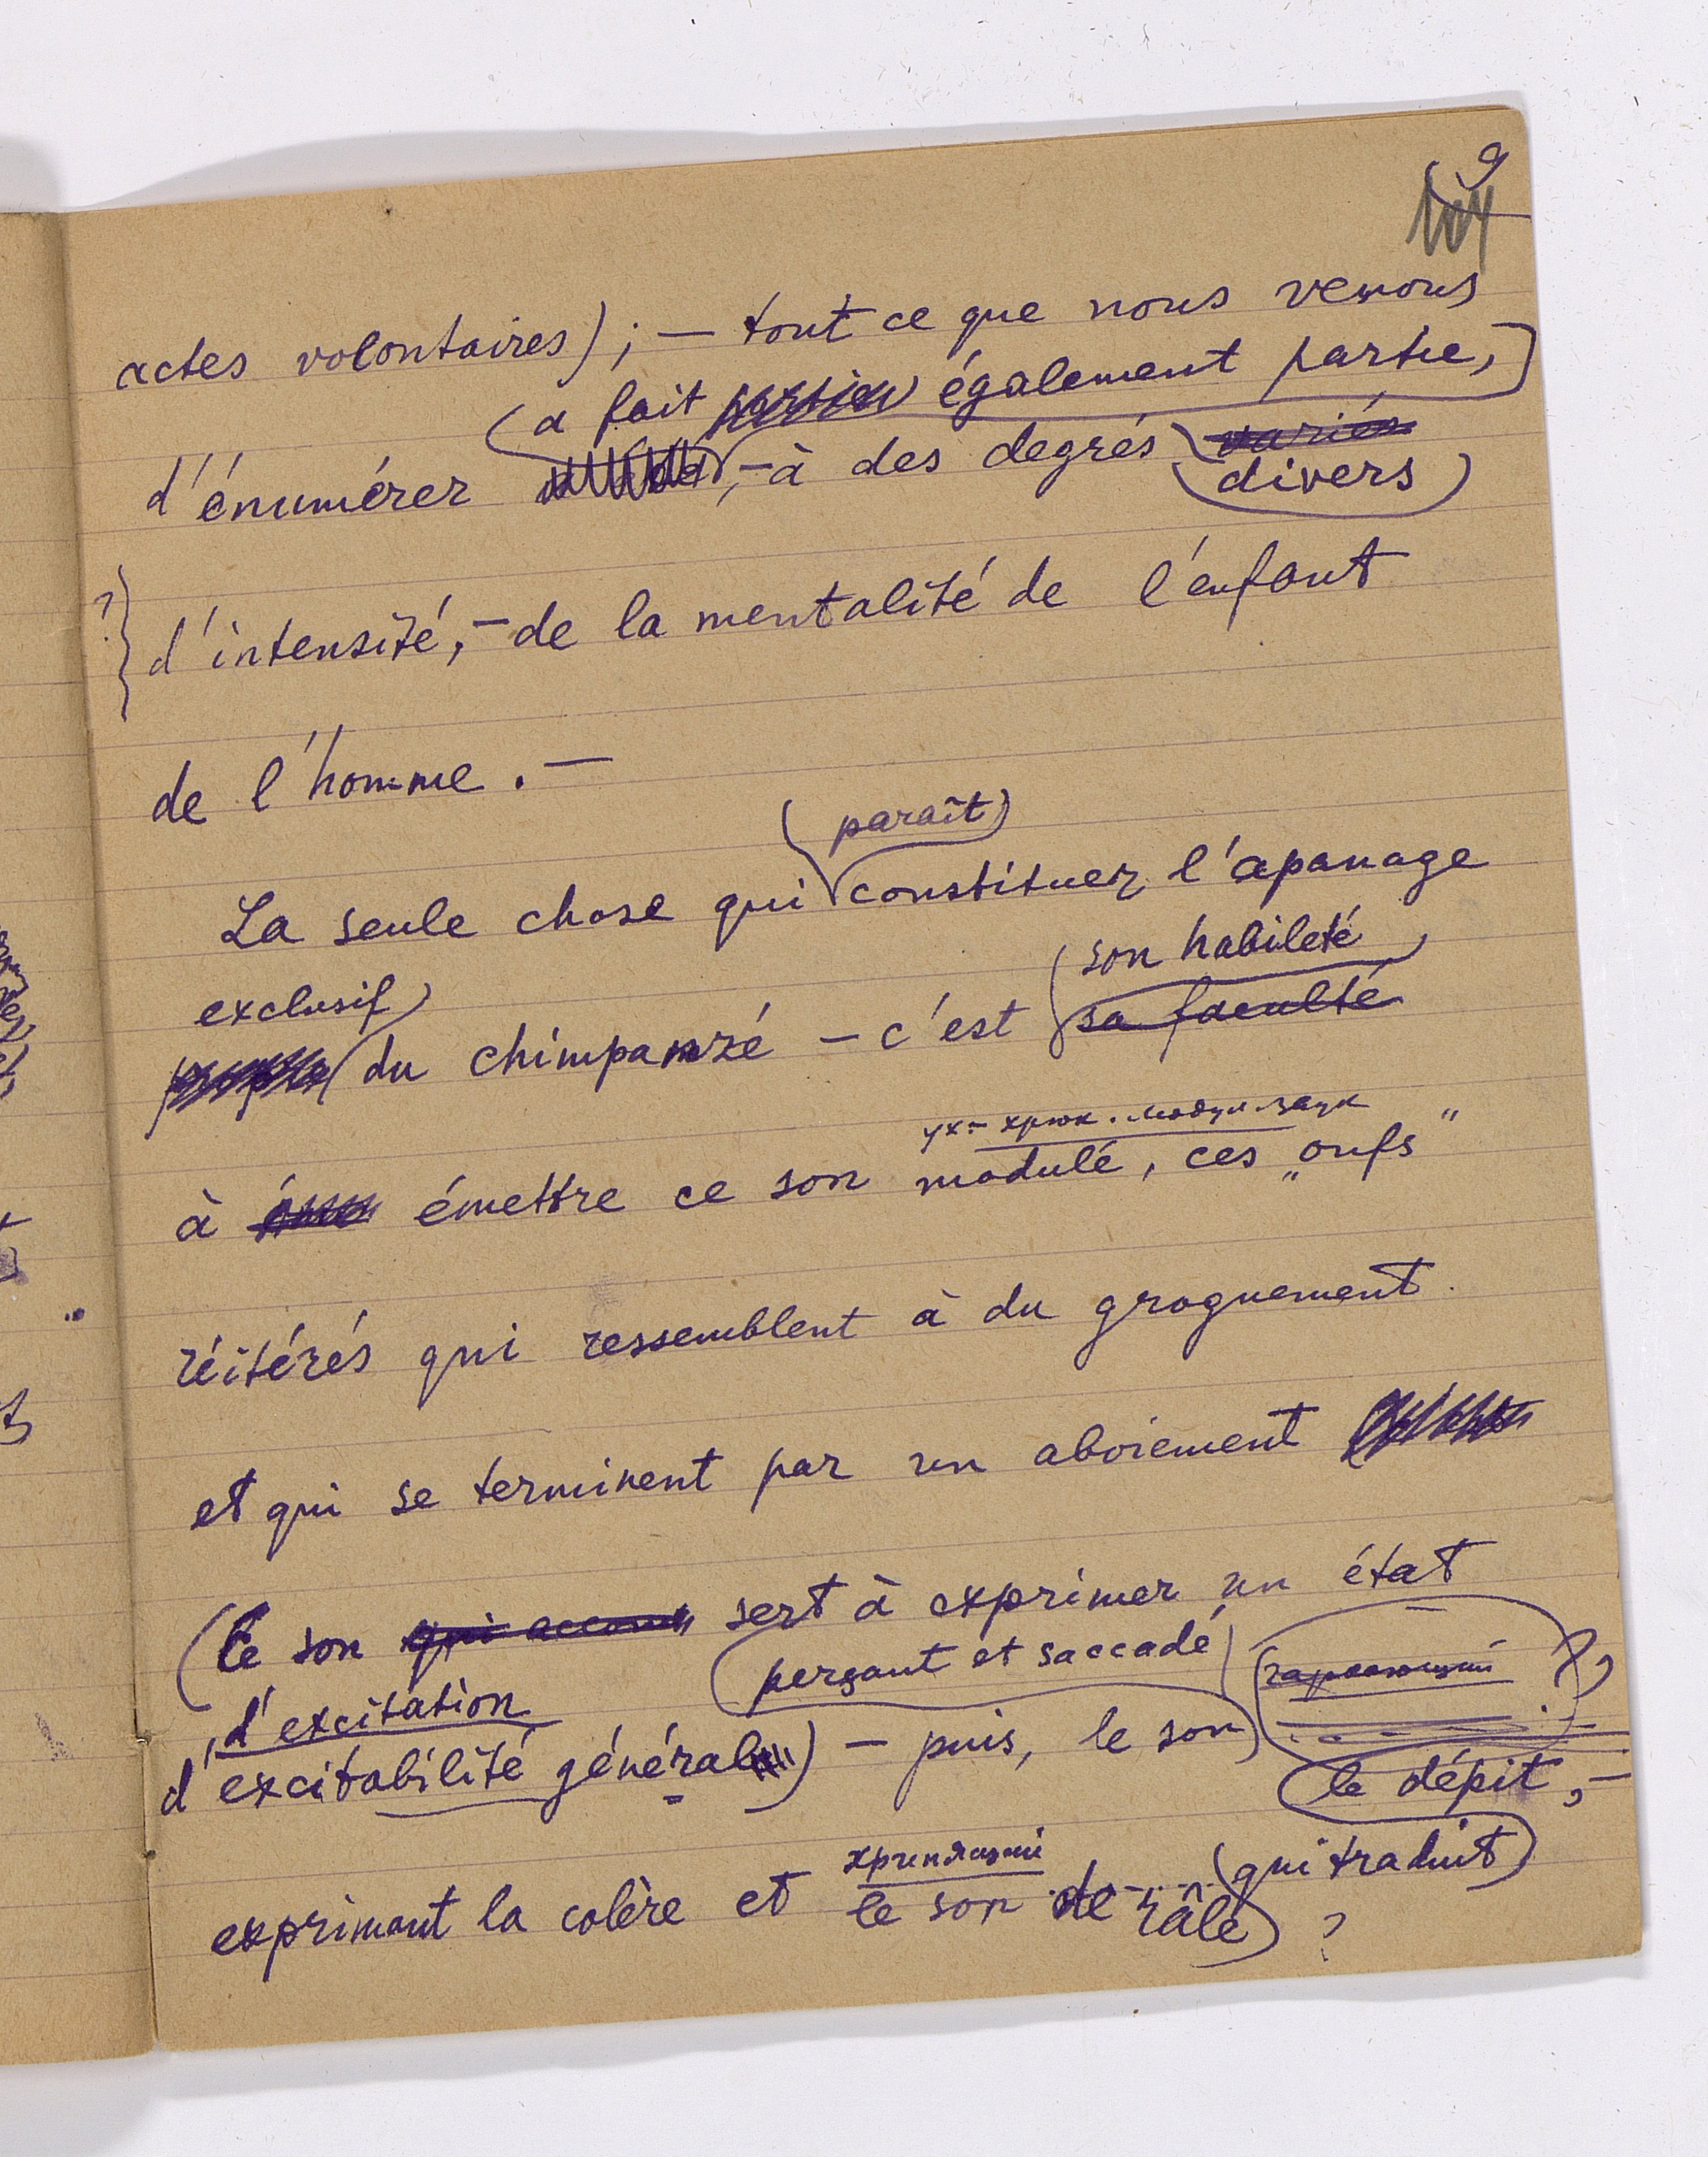 9
actes volontaires); — tout ce que nous venons
(a fait également partie,)
d'énumérer , — à des degrés variés
(divers)
? } d'intensité, — de la mentalité de l'enfant
de l'homme. —
(paraît)
La seule chose qui constituer l'apanage
(son habileté)
exclusif)
du chimpanzé — c'est sa faculté
ух = хрюк. модул. звук
à émettre ce son modulé, ces „oufs"
réitérés qui ressemblent à du grognement
et qui se terminent par un aboiement
(le son qui sert à exprimer un état
(perçant et saccadé)
d'excitation
d'excitabilité général) — puis, le son
le dépit, —
хрипящий
(qui traduit)
exprimant la colère et le son de râle) ?